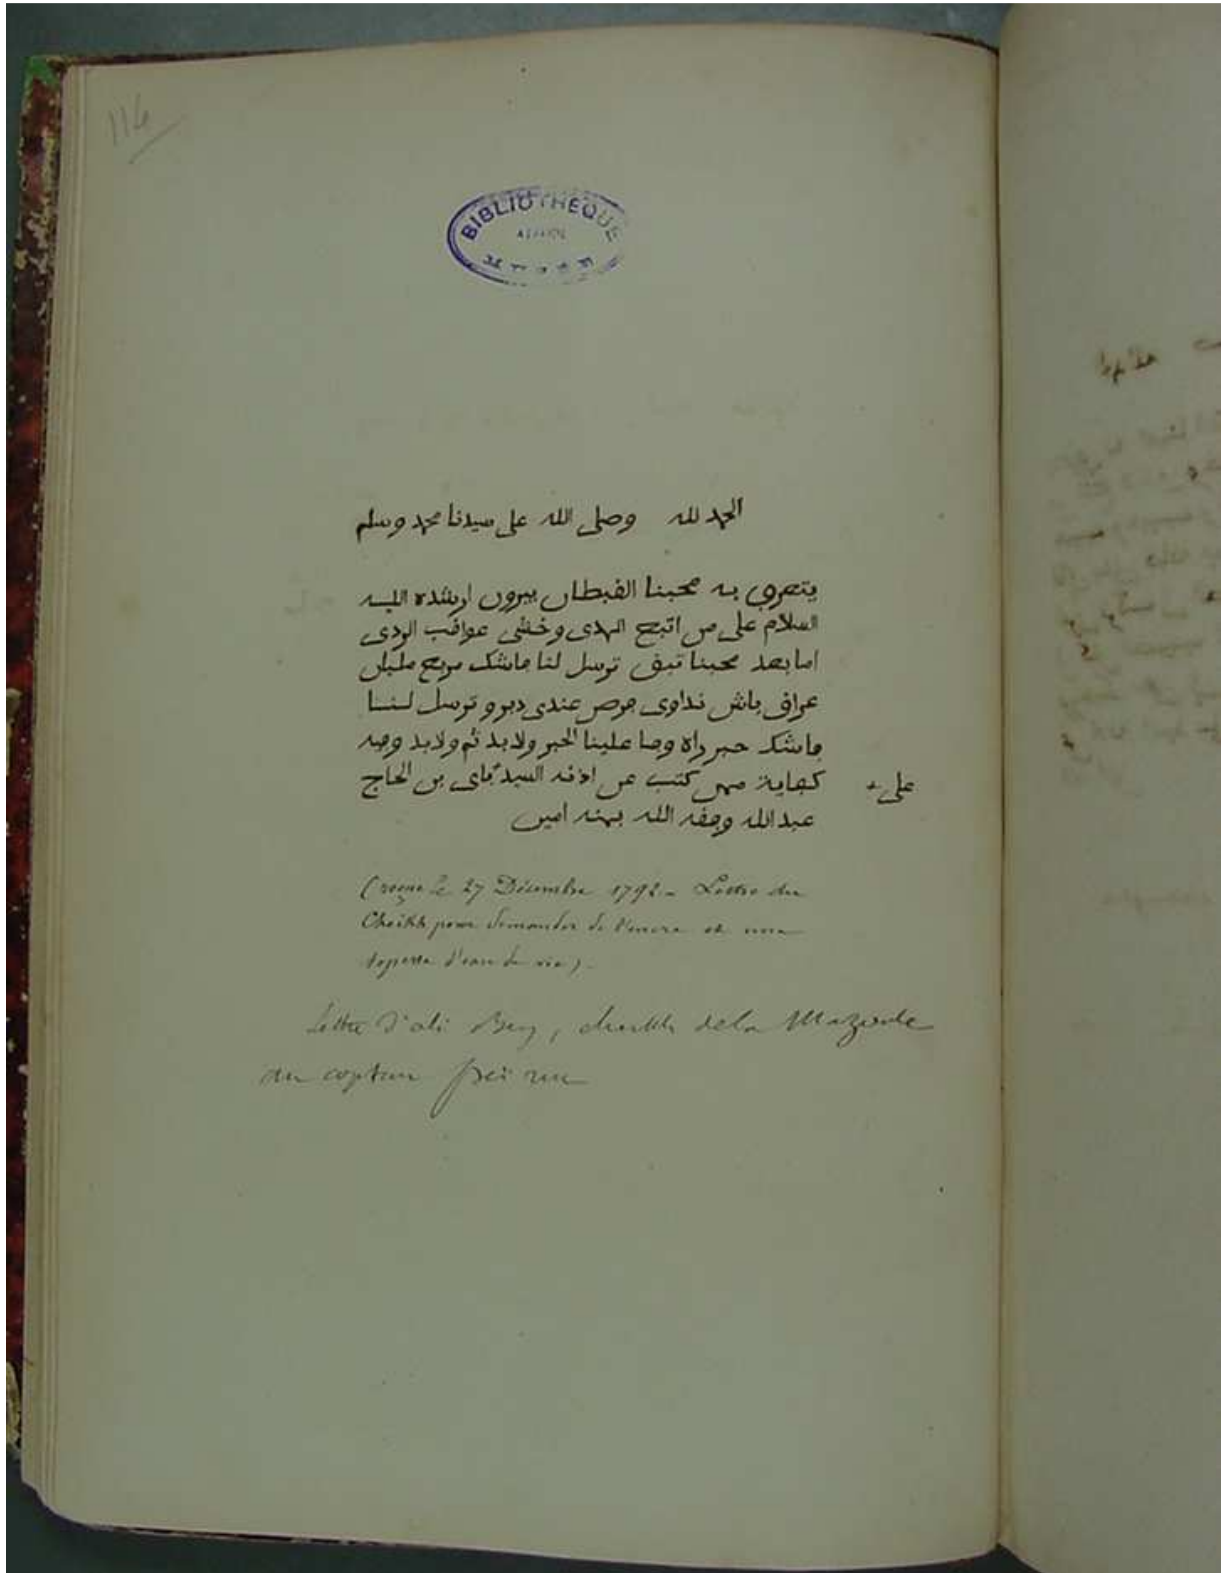 114
BIBLIOTHEQUE
MUSEE
الحمد لله وصلى الله على سيدنا محمد وسلم
يتعرب به محبنا القبطان بيرون ارشده الله
السلام على من اتبع الهدى وخشى عواقب الردى
اما بعد محبنا تبق ترسل لنا ماشك مربع مليان
عراقى باش نداوى مرض عندى دبر و ترسل لنا
ماشك حبر راه وما علينا الحبر ولا بد ثم ولا بد وبه
كفاية من كتب عن اذنه السيد على بن الحاج
على
عبد الله وفقه الله بمنه امين
(reçue le 27 Décembre 1792 - Lettre du
Cheikh pour demander de l'encre et une
topette d'eau de vie).
Lettre d'ali Bey, cheikh de la Mazoule
au captain Peïron